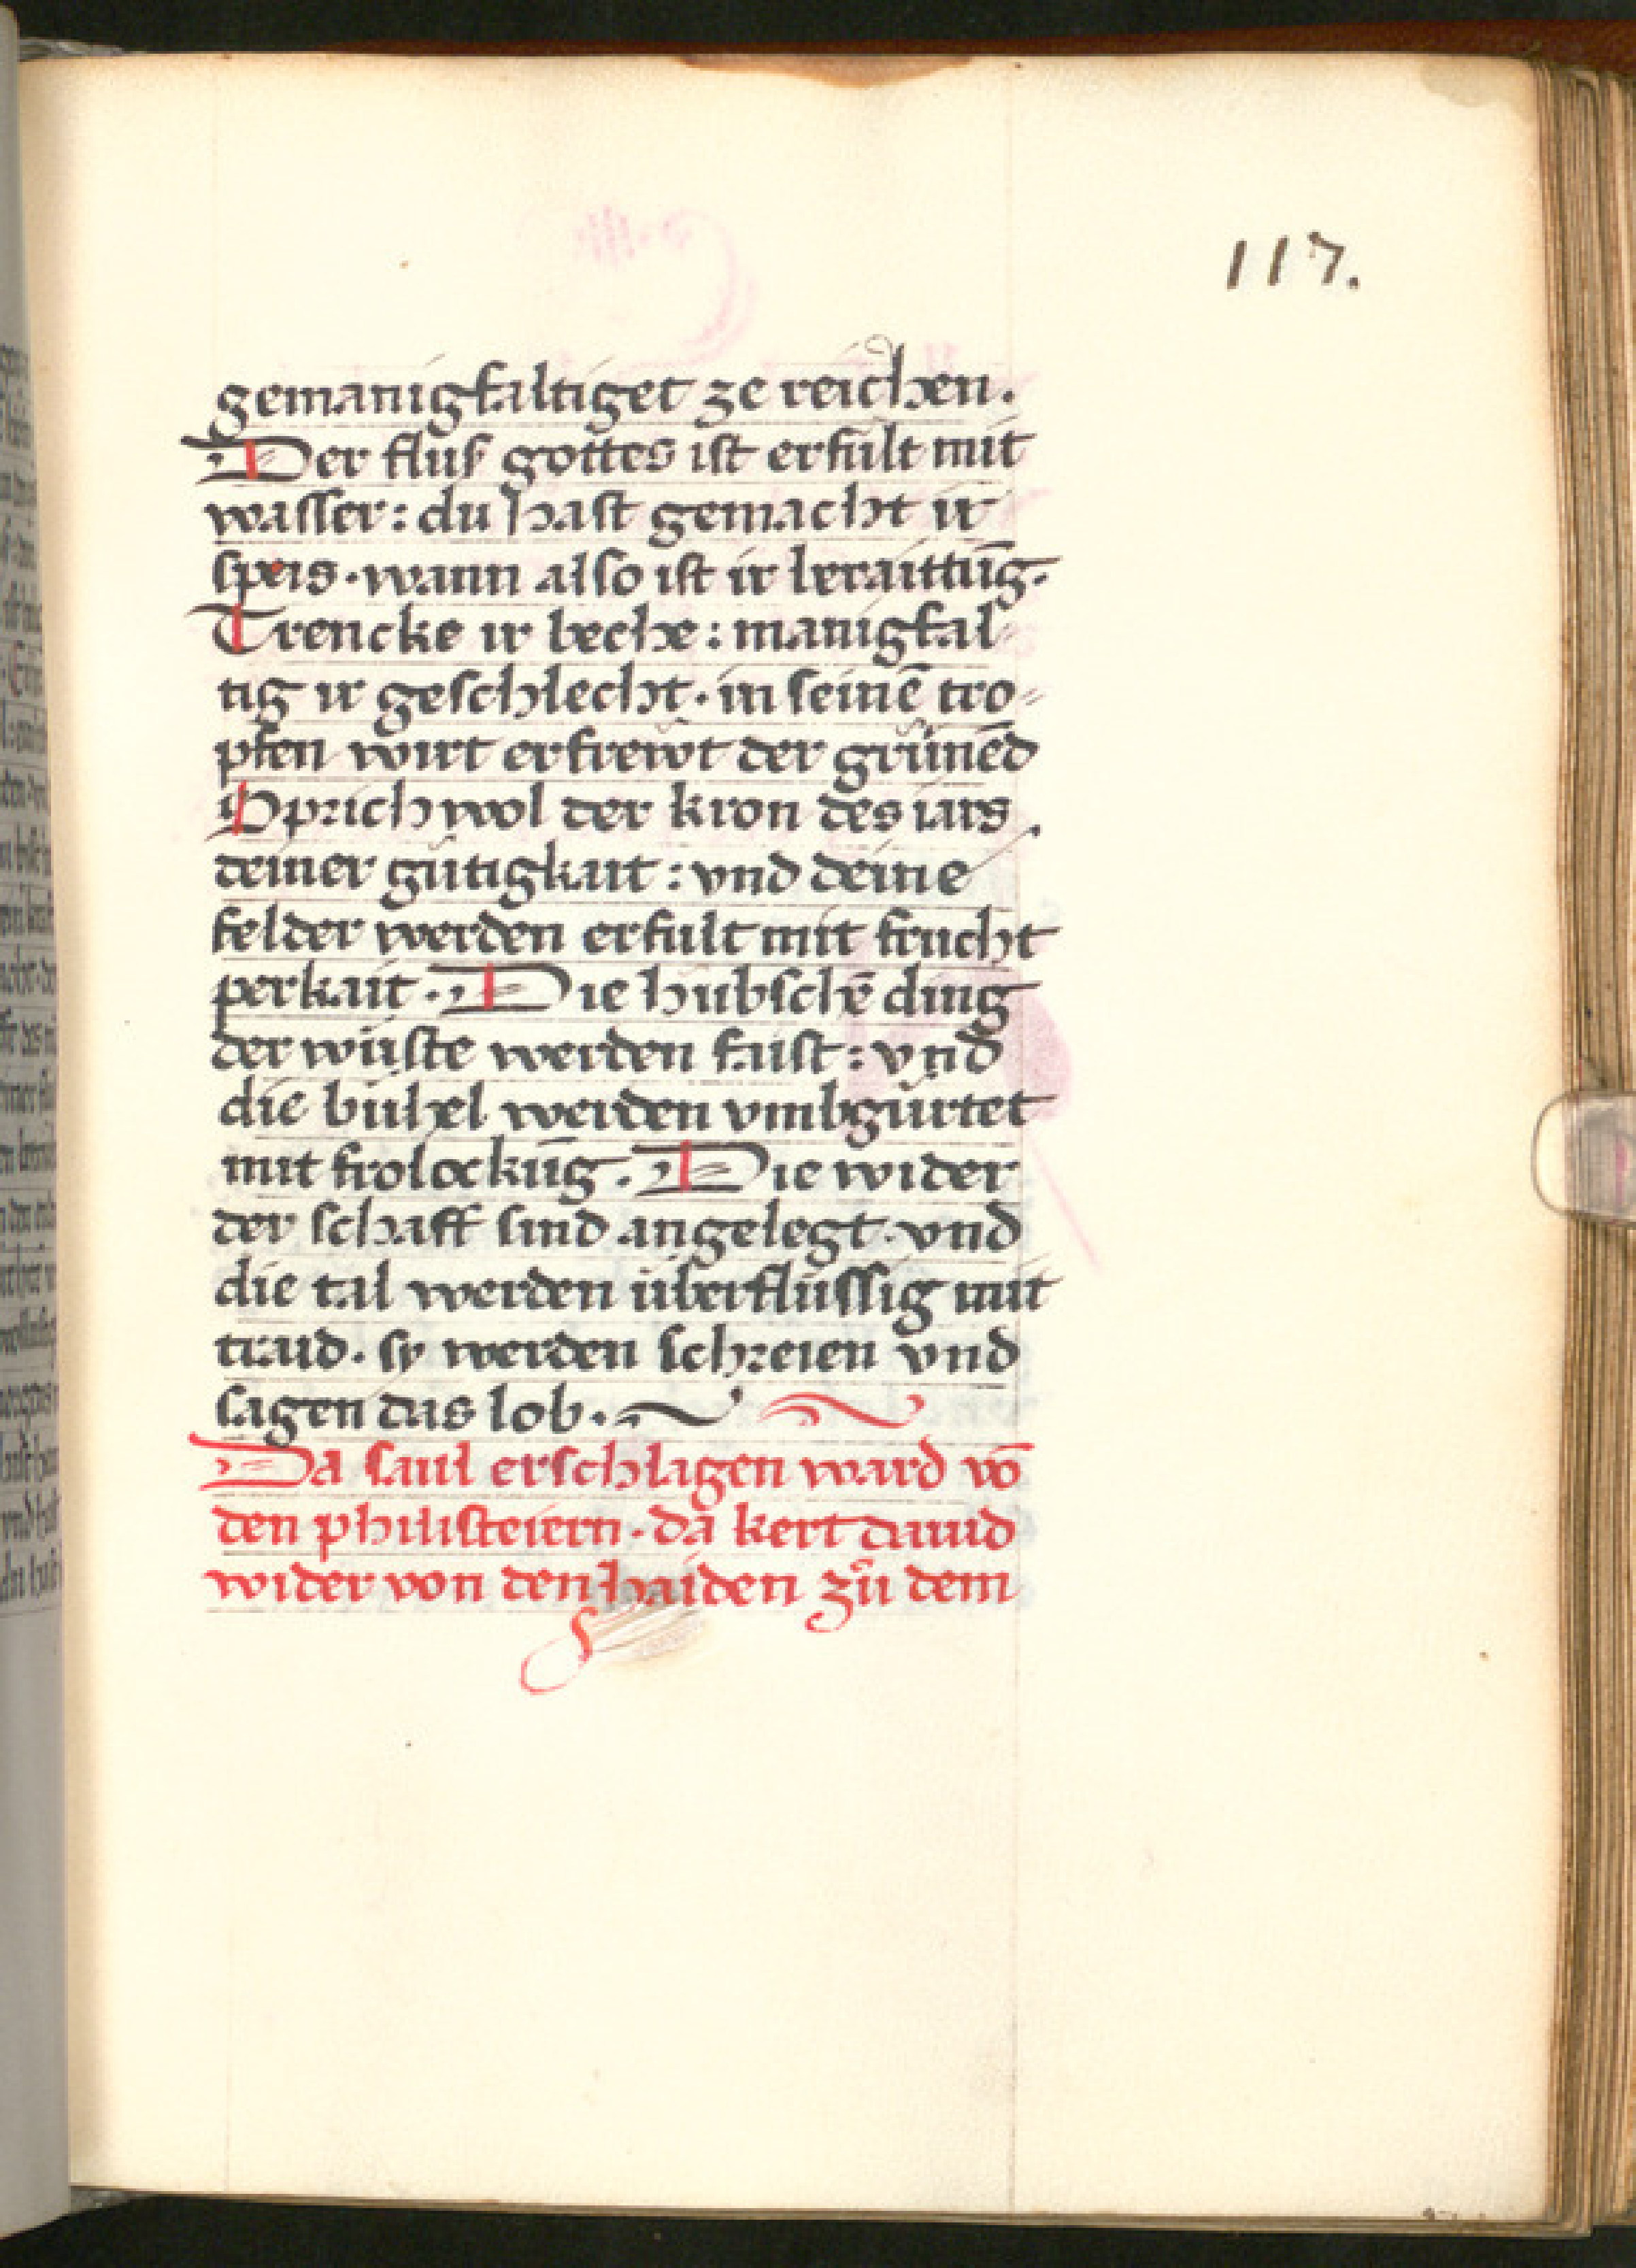 117.
gemanigfaltiget ze reichen.
Der flus gottes ist erfült mit
wasser: du hast gemacht ir
speis. wann also ist ir beraittūg.
Trencke ir beche: manigfal-
tig ir geschlecht. in seinē tro-
pfen wirt erfrewt der grünēd
Sprich wol der kron des iars.
deiner gütigkait: vnd deine
felder werden erfült mit frucht
perkait. Die hübschē ding
der wüste werden faist: vnd
die bühel werden vmbgürtet
mit frolockūg. Die wider
der schaff sind angelegt. vnd
die tal werden überflüssig mit
traid. sy werden schreien vnd
sagen das lob.
Da saul erschlagen ward vō
den philisteiern. da kert dauid
wider von den haiden zů dem